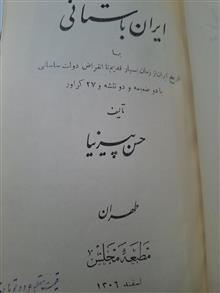 ایران باستانی
یا
تاریخ ایران از زمان بسیار قدیم تا انقراض دولت ساسانی
با دو ضمیمه و دو نقشه و ۲۷ گراور
تألیف
حسن پیرنیا
طهران
مطبعه مجلس
اسفند ۱۳۰۶
قیمت